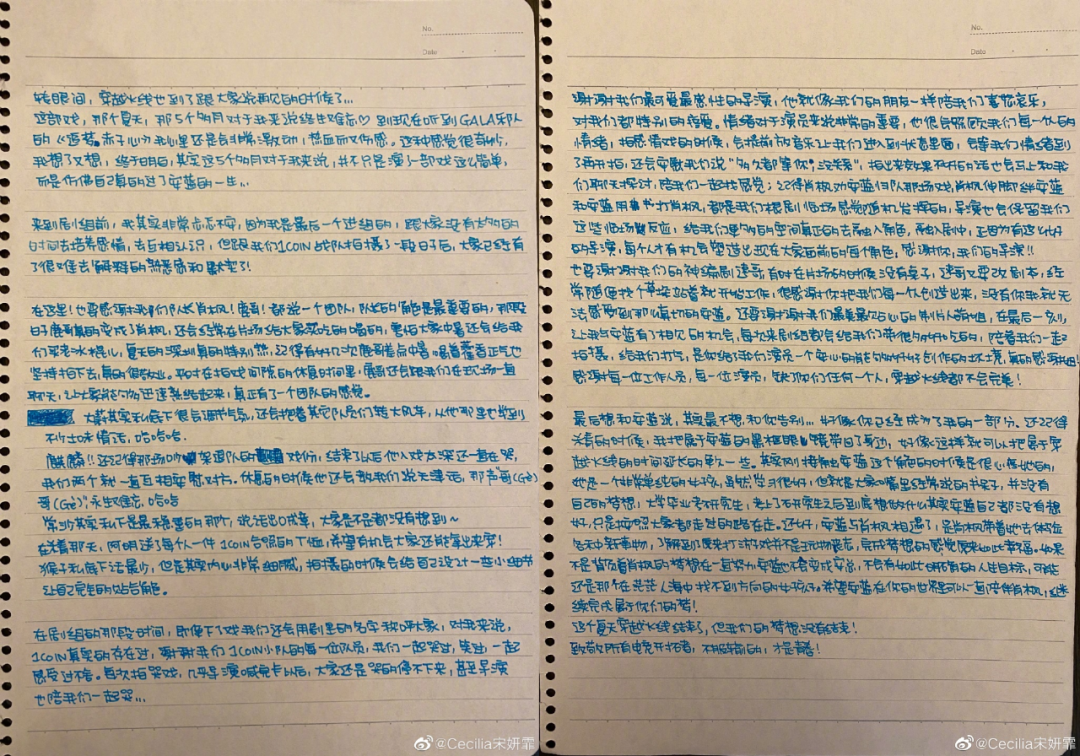 No.
Date
转眼间，穿越火线也到了跟大家说再见的时候了...
这部戏，那个夏天，那5个月对于我来说终生难忘♡ 到现在听到GALA乐队
的《追梦赤子心》我心里还是会非常激动，热血而又伤感。这种感觉很奇妙，
我想了又想，终于明白，其实这5个月对于我来说，并不只是演了一部戏这么简单，
而是仿佛自己真的过了安蓝的一生...
来到剧组前，我其实非常忐忑不安，因为我是最后一个进组的，跟大家没有太多的
时间去培养感情，去互相认识，但跟我们1COIN战队拍摄了一段日子后，大家已经有
了很难去解释的熟悉感和默契了！
在这里！也要感谢我们队长肖枫！鹿哥！都说一个团队，队长的角色是最重要的，那段
日子鹿哥真的变成了肖枫，还会经常在片场给大家买吃的喝的，害怕大家中暑还会给我
们买老冰棍儿，夏天的深圳真的特别热，记得有好几次鹿哥差点中暑，喝着藿香正气也
坚持拍下去，真的很敬业。平时在拍戏间隙的休息时间里，鹿哥还会跟我们在现场一直
聊天，让大家能够迅速熟络起来，真正有了一个团队的感觉。
大蒜其实私底下很会调节气氛，还会抱着其它队员们转大风车，从他那里也学到
不少土味情话，哈哈哈。
麒麟！！还记得那场吵架退队的戏份，结束了以后他入戏太深还一直在哭，
我们两个就一直互相安慰对方。休息的时候他还会教我们说天津话，那声哥(Gē)
哥(Ge)，永生难忘，哈哈
常沙其实私下是最不稳重的那个，说话出口成章，大家是不是都没有想到~
在杀青那天，阿明送了每个人一件1COIN合照的T恤，希望有机会大家还能拿出来穿！
猴子私底下话最少，但是其实内心非常细腻，拍摄的时候会给自己设计一些小细节
让自己完全的贴合角色。
在剧组的那段时间，即便下了戏我们还会用剧里的名字称呼大家，对我来说，
1COIN真实的存在过，谢谢我们1COIN小队的每一位队员，我们一起哭过，笑过，一起
感受过不舍。每次拍哭戏，几乎导演喊完卡以后，大家还是哭的停不下来，甚至导演
也陪我们一起哭...
@Cecilia宋妍霏
No.
Date
谢谢我们最可爱最感性的导演，他就像我们的朋友一样陪我们喜怒哀乐，
对我们都特别的宠爱。情绪对于演员来说非常的重要，他很会照顾我们每一个人的
情绪，拍感情戏的时候，会提前放音乐让我们进入到状态里面，会等我们情绪到
了再开拍，还会安慰我们说“多久都等你，没关系”，拍出来效果不好的话也会马上和我
们聊天探讨，陪我们一起找感觉；记得肖枫劝安蓝归队那场戏，肖枫伸脚绊安蓝
和安蓝用书打肖枫，都是我们根据临场感觉随机发挥的，导演也会保留我们
这些临场反应，给我们更多的空间真正的去融入角色，融入剧中，正因为有这么好
的导演，每个人才有机会塑造出现在大家面前的每个角色，感谢你，我们的导演！！
也要谢谢我们的神编剧逵哥，有时在片场的时候没有桌子，逵哥又要改剧本，经
常随便找个草垛站着就开始工作，很感谢你把我们每一个人创造出来，没有你我就无
法感受到那么真切的安蓝。还要谢谢我们最美最贴心的制片人姐姐，在最后一刻，
让我与安蓝有了相见的机会，每次来剧组都会给我们带很多好吃的，陪着我们一起
拍摄，给我们打气，是你给了我们演员一个安心的能够好好创作的环境，真的感谢姐姐
感谢每一位工作人员，每一位演员，缺少你们任何一个人，穿越火线都不会完美！
最后想和安蓝说，其实最不想和你告别... 好像你已经成为了我的一部分。还记得
杀青的时候，我把属于安蓝的黑框眼镜带回了身边，好像这样就可以把属于穿
越火线的时间延长的更久一些。其实刚接触安蓝这个角色的时候是很心疼她的，
她是一个非常单纯的女孩，虽然学习很好，但就是大家嘴里经常说的书呆子，并没有
自己的梦想，大学毕业考研究生，考上了研究生之后到底想做什么其实安蓝自己都没有想
好，只是按照大家都走过的路在走。还好，安蓝与肖枫相遇了，是肖枫带着她去体验
各种新事物，了解到原来打游戏并不是玩物丧志，完成梦想的感觉原来如此幸福。如果
不是背负着肖枫的梦想在一直努力，安蓝也不会变成安总，不会有如此明确的人生目标，可能
还是那个在茫茫人海中找不到方向的女孩子。希望安蓝在你的世界可以一直陪伴肖枫，继
续完成属于你们的梦！
这个夏天穿越火线结束了，但我们的梦想没有结束！
致敬所有电竞开拓者，不服输的，才是青春！
@Cecilia宋妍霏